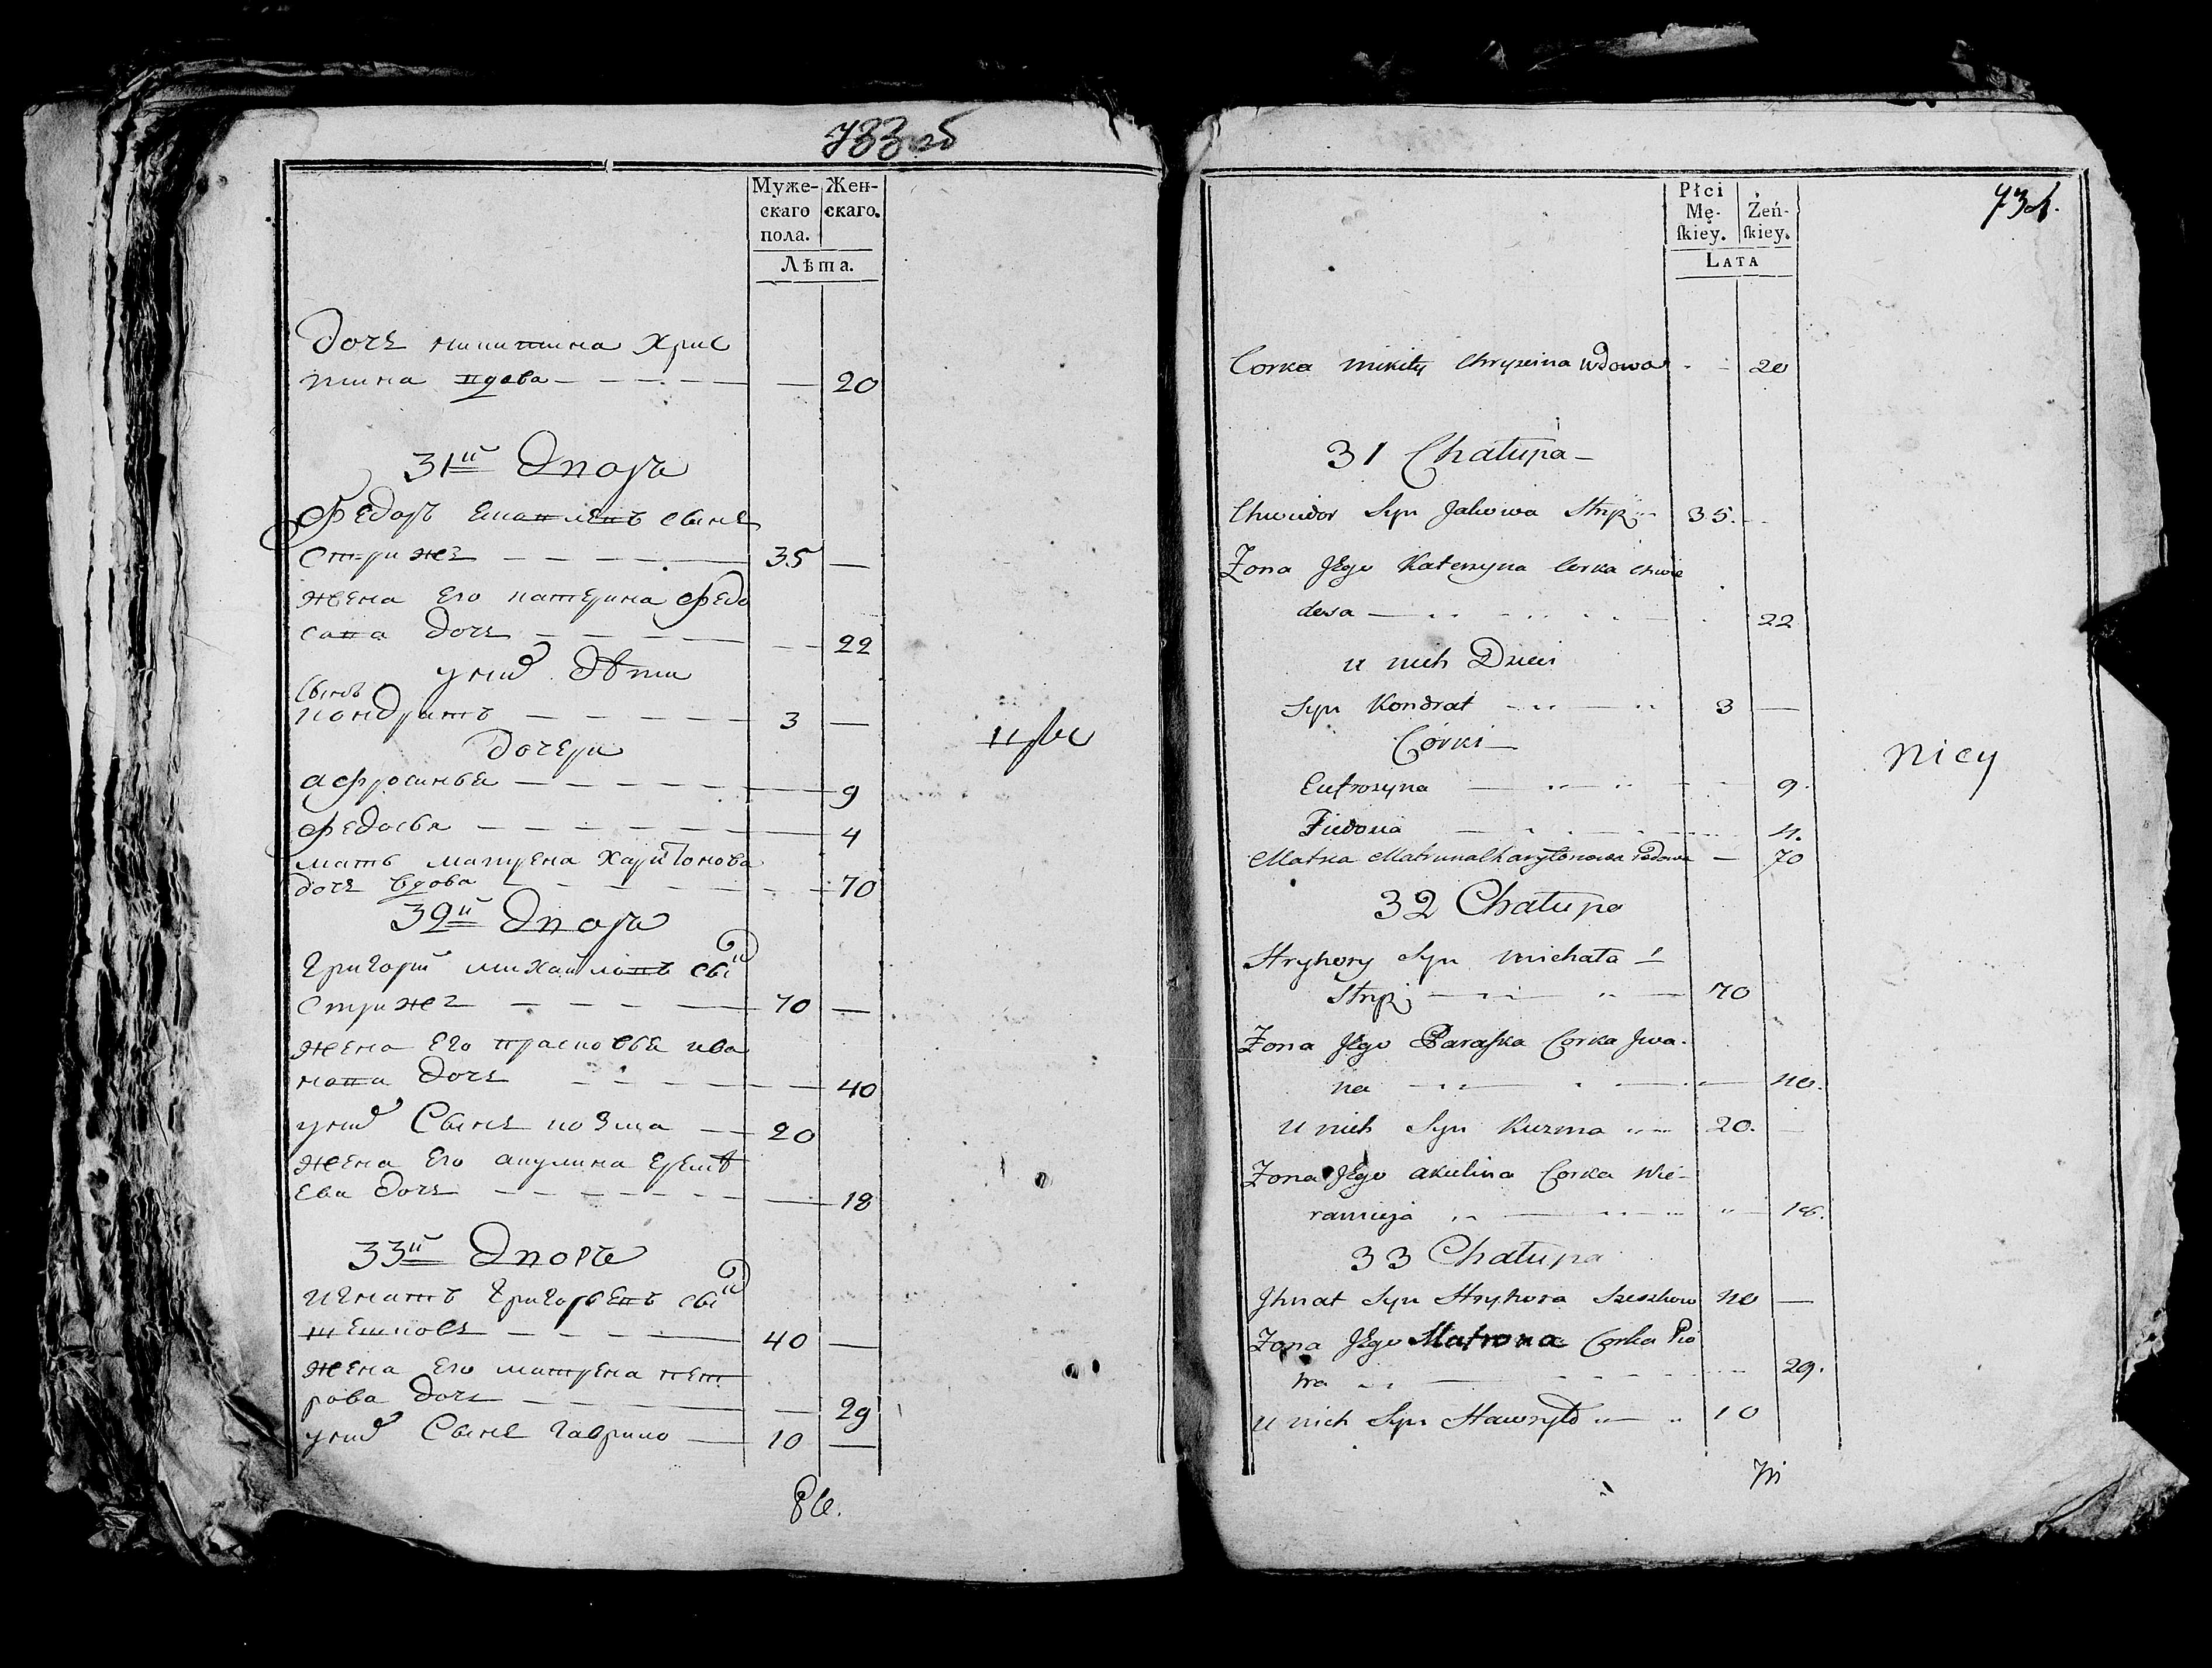 733 об
Муже-
скаго
пола.
Жен-
скаго.
Лѣта.
дочь никитина хрис
тина вдова — 20
31й Дворъ
Федоръ сынъ
Стрижъ — 35 —
жена его катерина Федо
сова дочь — 22
у них дѣти
сынъ
кондратъ — 3 —
дочери
афросинья — 9
федосья — 4
мать матрена харитонова
дочь вдова — 70
32й Дворъ
григорий михайловъ сын
Стрижъ — 70 —
жена его прасковья ива
нова дочь — 40
у них Сынъ козма — 20
жена его акулина еремѣ
ева дочь — 18
33й Дворъ
игнатъ григорьевъ сын
шешковъ — 40 —
жена его матрена пет
рова дочь — 29
у них Сынъ гаврило — 10 —
Płci
Mę-
ſkiey.
Żeń-
ſkiey.
LATA
734.
Corka Mikity Chrystina wdowa 20
31 Chałupa
Chwiedor Syn Jakowa Stryż 35.
Żona Jego Katerzyna Corka Chwie
desa 22
u nich Dzieci
Syn Kondrat 3 —
Córki
Eufrozyna 9.
Fiedosia 4.
Matka Matruna Charytonowa wdowa — 70
32 Chałupa
Hryhory Syn Michała
Stryż 70
Żona Jego Paraſka Corka Jwa-
na 40.
u nich Syn Kuzma 20. —
Żona Jego Akulina Corka
18.
33 Chałupa
Jhnat Syn Hryhora Szeszkow 40 —
Żona Jego Matrona Corka Pio
tra 29.
u nich Syn Hawryło 10